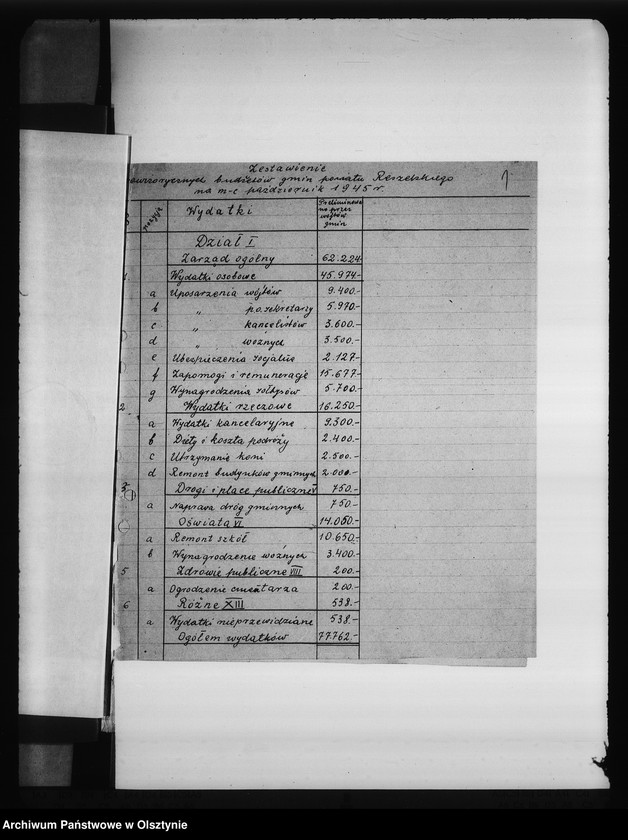 Zestawienie
budżetów gmin powiatu Reszelskiego
na m-c październik 1945 r.
1
pozycja Wydatki Preliminowano przez wójtów gmin
Dział I
Zarząd ogólny 62.224.-
1. Wydatki osobowe 45.974.-
a Uposażenia wójtów 9.400.-
b " p.o. sekretarzy 5.970.-
c " kancelistów 3.600.-
d " woźnych 3.500.-
e Ubezpieczenia socjalne 2.127.-
f Zapomogi i remuneracje 15.677.-
g Wynagrodzenia sołtysów 5.700.-
2. Wydatki rzeczowe 16.250.-
a Wydatki kancelaryjne 9.300.-
b Diety i koszta podróży 2.400.-
c Utrzymanie koni 2.500.-
d Remont budynków gminnych 2.000.-
3 Drogi i place publiczne V 750.-
a Naprawa dróg gminnych 750.-
Oświata VI 14.050.-
a Remont szkół 10.650.-
b Wynagrodzenie woźnych 3.400.-
5 Zdrowie publiczne VIII 200.-
a Ogrodzenie cmentarza 200.-
6 Różne XIII 538.-
a Wydatki nieprzewidziane 538.-
Ogółem wydatków 77762.-
Archiwum Państwowe w Olsztynie